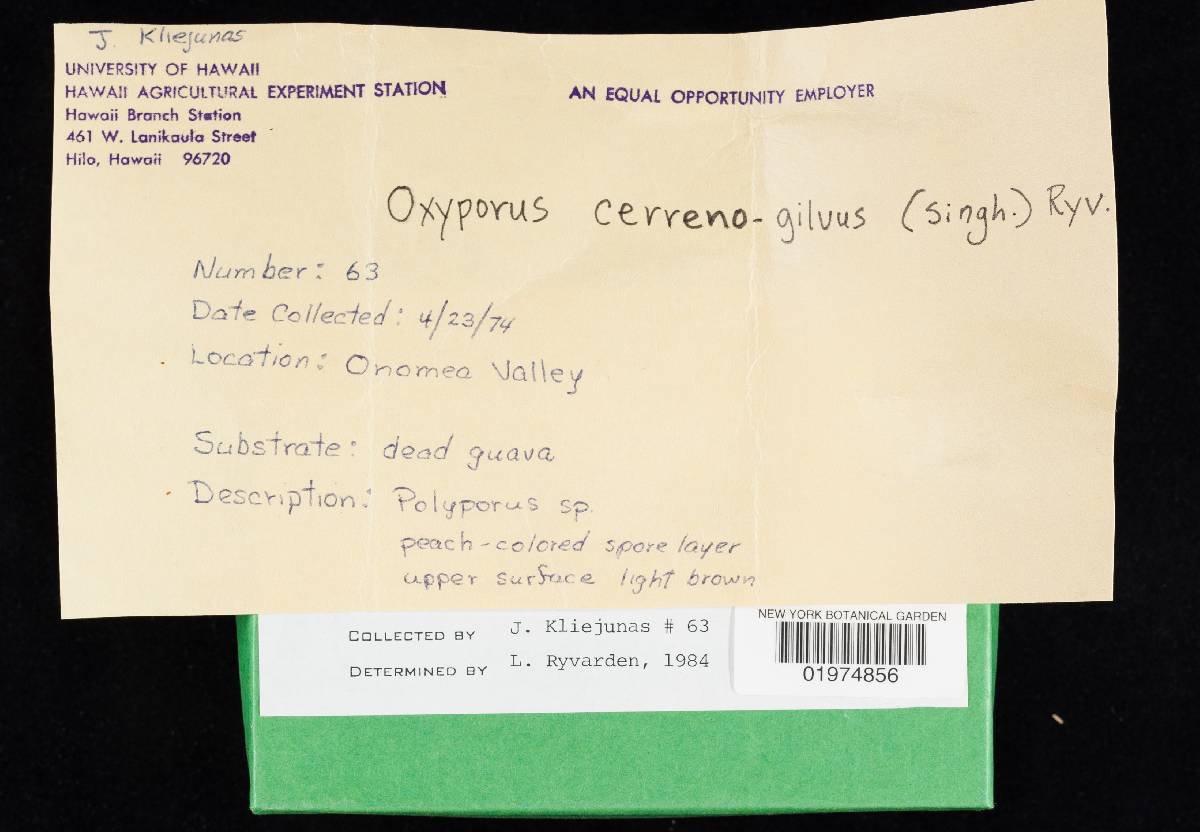 J. Kliejunas
UNIVERSITY OF HAWAII
HAWAII AGRICULTURAL EXPERIMENT STATION
Hawaii Branch Station
461 W. Lanikaula Street
Hilo, Hawaii 96720
AN EQUAL OPPORTUNITY EMPLOYER
Oxyporus cerreno-gilvus (Singh.) Ryv.
Number: 63
Date Collected: 4/23/74
Location: Onomea Valley
Substrate: dead guava
Description: Polyporus sp.
peach-colored spore layer
upper surface light brown
COLLECTED BY J. Kliejunas # 63
DETERMINED BY L. Ryvarden, 1984
NEW YORK BOTANICAL GARDEN
01974856